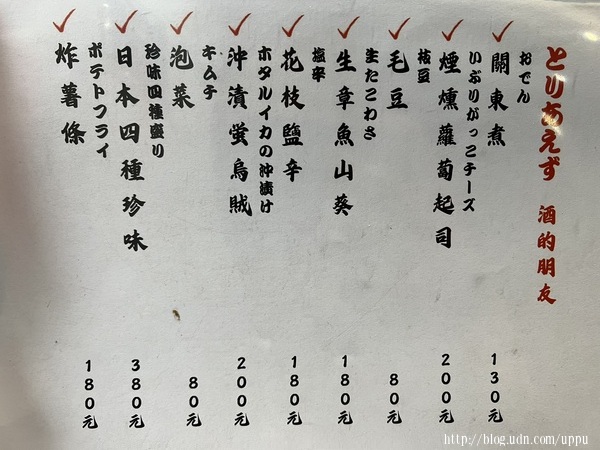 とりあえず 酒的朋友
おでん
關東煮 130元
いぶりがっこチーズ
煙燻蘿蔔起司 200元
枝豆
毛豆 80元
生たこわさ
生章魚山葵 180元
塩辛
花枝鹽辛 180元
ホタルイカの沖漬け
沖漬螢烏賊 200元
キムチ
泡菜 80元
珍味四種盛り
日本四種珍味 380元
ポテトフライ
炸薯條 180元
http://blog.udn.com/uppu